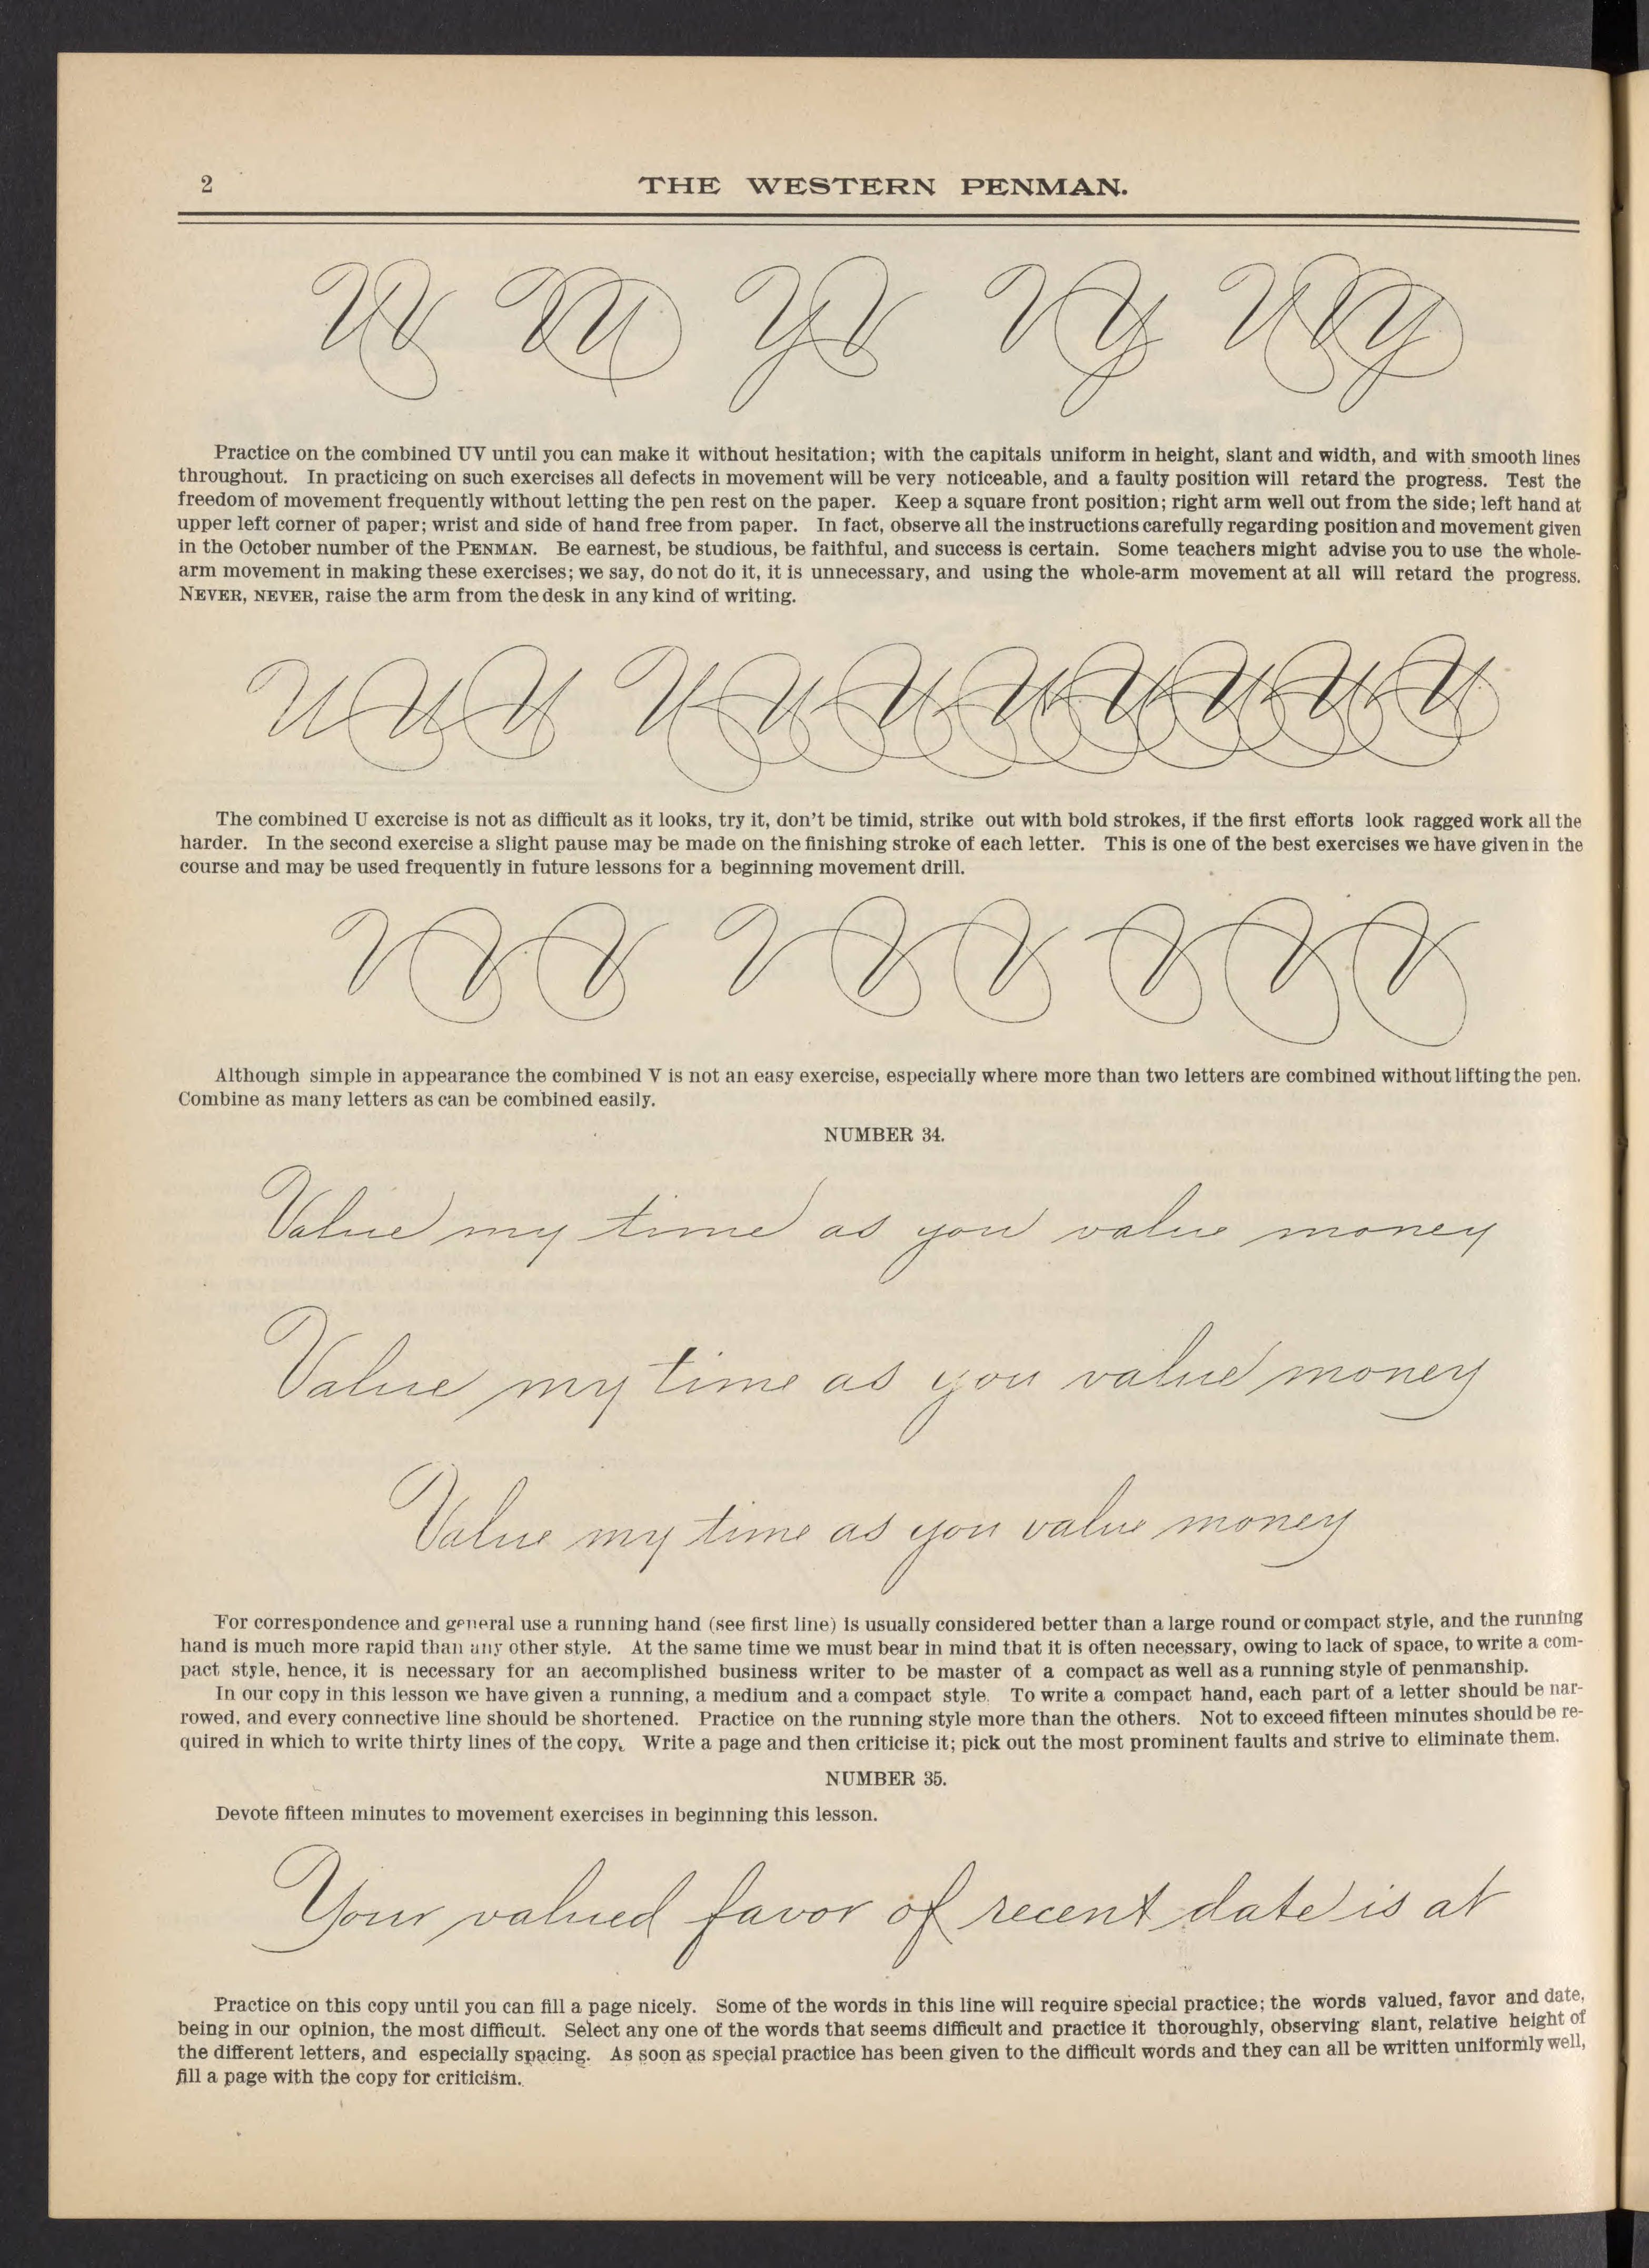 2
THE WESTERN PENMAN.
Practice on the combined UV until you can make it without hesitation; with the capitals uniform in height, slant and width, and with smooth lines
throughout. In practicing on such exercises all defects in movement will be very noticeable, and a faulty position will retard the progress. Test the
freedom of movement frequently without letting the pen rest on the paper. Keep a square front position; right arm well out from the side; left hand at
upper left corner of paper; wrist and side of hand free from paper. In fact, observe all the instructions carefully regarding position and movement given
in the October number of the PENMAN. Be earnest, be studious, be faithful, and success is certain. Some teachers might advise you to use the whole-
arm movement in making these exercises; we say, do not do it, it is unnecessary, and using the whole-arm movement at all will retard the progress.
NEVER, NEVER, raise the arm from the desk in any kind of writing.
The combined U excrcise is not as difficult as it looks, try it, don't be timid, strike out with bold strokes, if the first efforts look ragged work all the
harder. In the second exercise a slight pause may be made on the finishing stroke of each letter. This is one of the best exercises we have given in the
course and may be used frequently in future lessons for a beginning movement drill.
Although simple in appearance the combined V is not an easy exercise, especially where more than two letters are combined without lifting the pen.
Combine as many letters as can be combined easily.
NUMBER 34.
Value my time as you value money
Value my time as you value money
Value my time as you value money
For correspondence and general use a running hand (see first line) is usually considered better than a large round or compact style, and the running
hand is much more rapid than any other style. At the same time we must bear in mind that it is often necessary, owing to lack of space, to write a com-
pact style, hence, it is necessary for an accomplished business writer to be master of a compact as well as a running style of penmanship.
In our copy in this lesson we have given a running, a medium and a compact style. To write a compact hand, each part of a letter should be nar-
rowed, and every connective line should be shortened. Practice on the running style more than the others. Not to exceed fifteen minutes should be re-
quired in which to write thirty lines of the copy. Write a page and then criticise it; pick out the most prominent faults and strive to eliminate them.
NUMBER 35.
Devote fifteen minutes to movement exercises in beginning this lesson.
Your valued favor of recent date is at
Practice on this copy until you can fill a page nicely. Some of the words in this line will require special practice; the words valued, favor and date,
being in our opinion, the most difficult. Select any one of the words that seems difficult and practice it thoroughly, observing slant, relative height of
the different letters, and especially spacing. As soon as special practice has been given to the difficult words and they can all be written uniformly well,
fill a page with the copy for criticism.